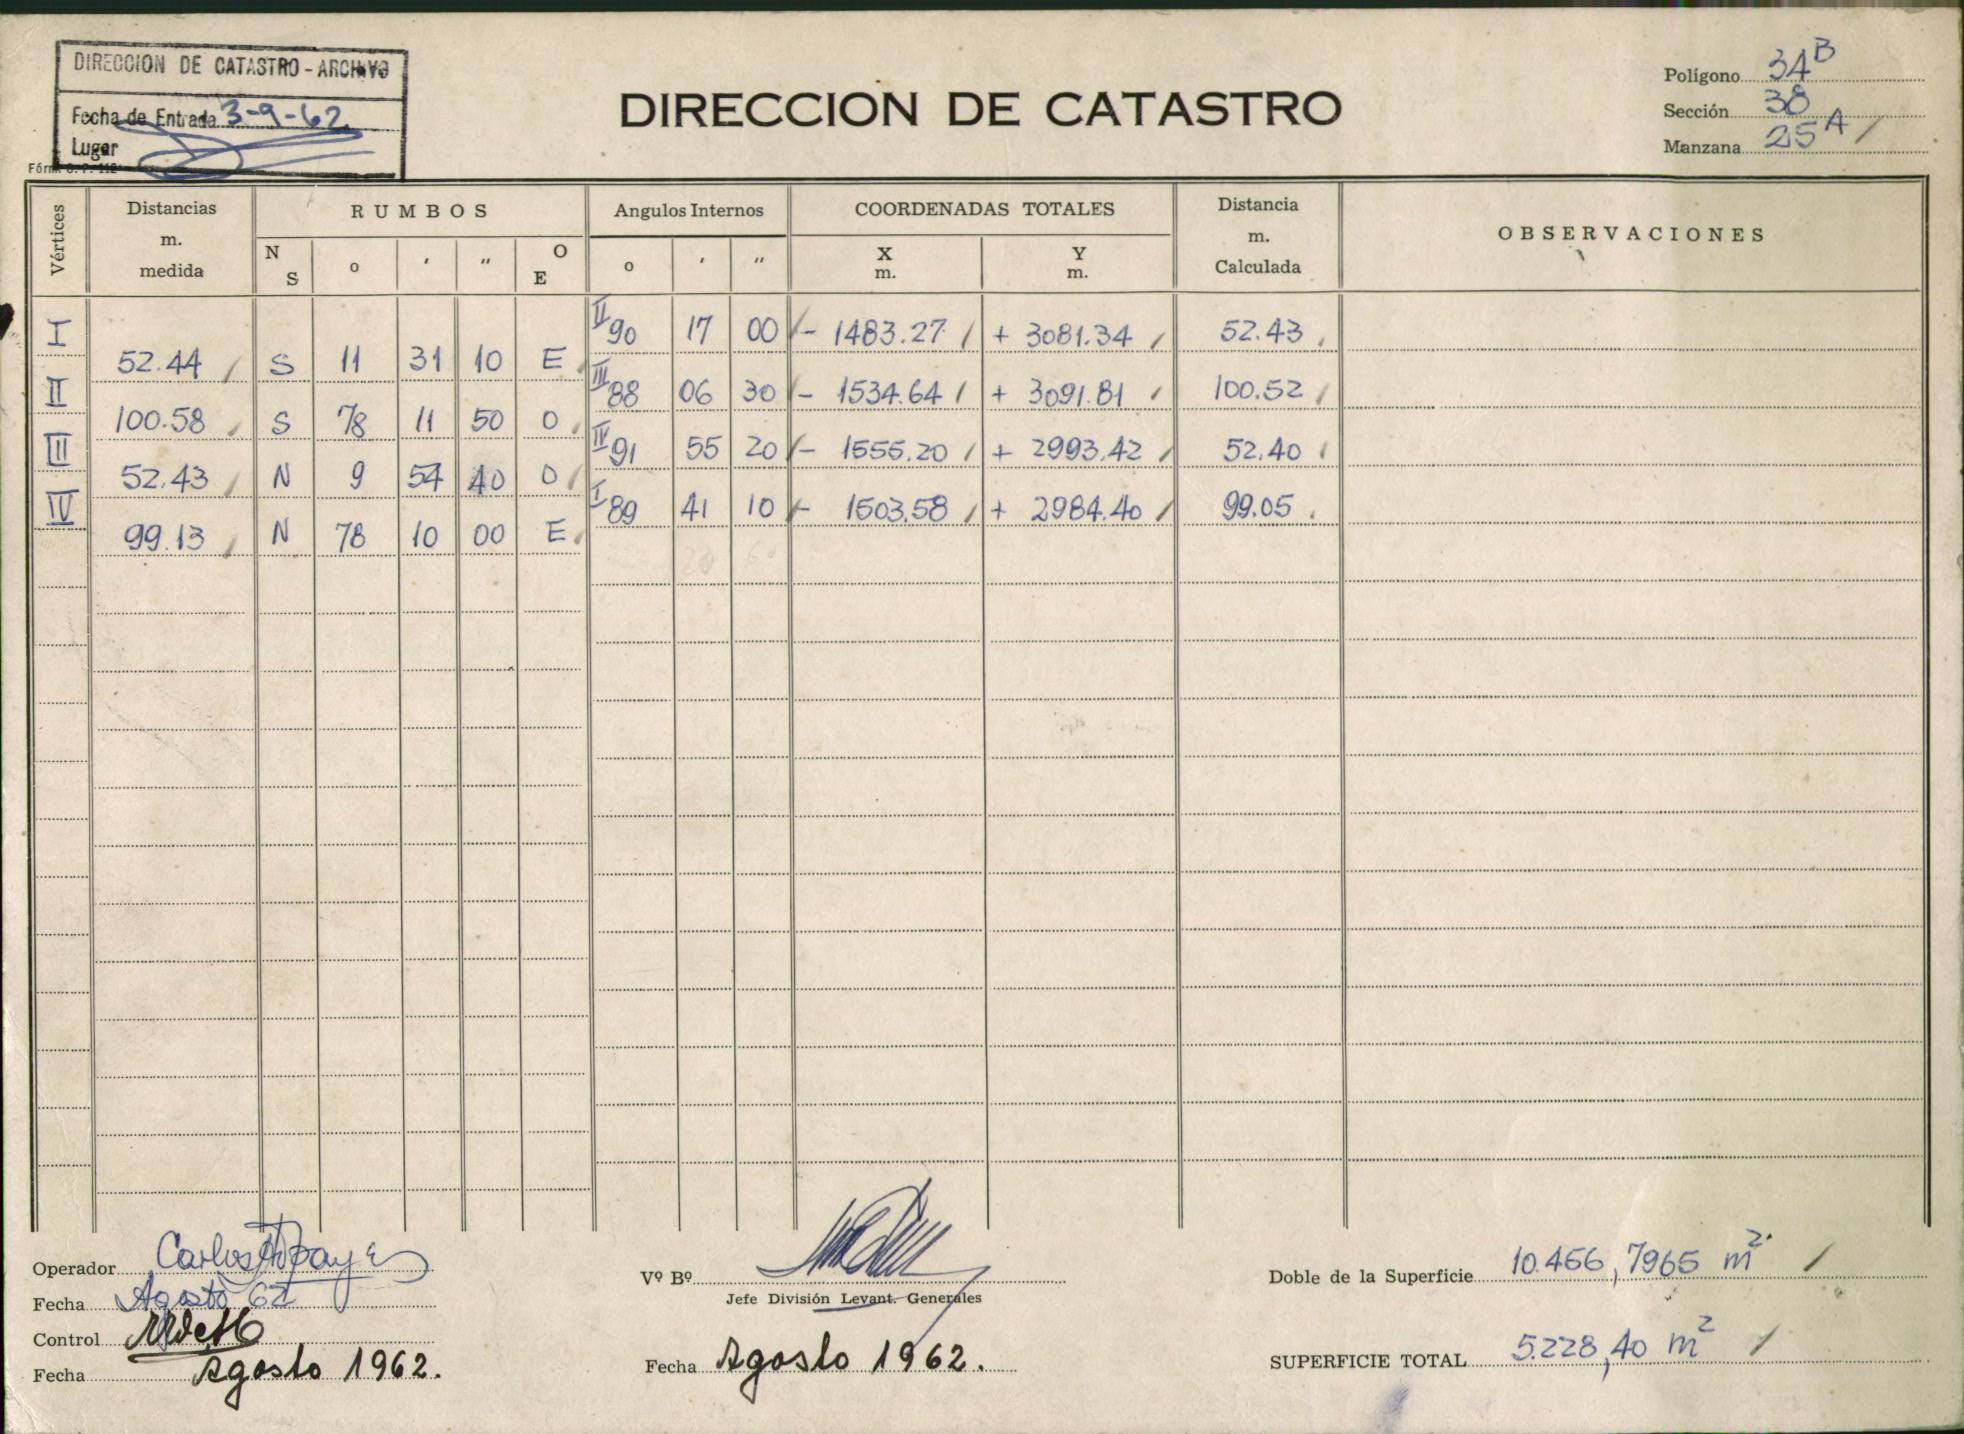 DIRECCION DE CATASTRO - ARCHIVO
Fecha de Entrada 3-9-62
Lugar
DIRECCION DE CATASTRO
Polígono 34 B
Sección 38
Manzana 25 A
Vértices
Distancias m. medida
RUMBOS
N S o ' " O E
Angulos Internos
o ' "
COORDENADAS TOTALES
X m. Y m.
Distancia m. Calculada
OBSERVACIONES
I II 90 17 00 - 1483.27 + 3081.34 52.43
52.44 S 11 31 10 E
II III 88 06 30 - 1534.64 + 3091.81 100.52
100.58 S 78 11 50 O
III IV 91 55 20 - 1555.20 + 2993.42 52.40
52.43 N 9 54 40 O
IV I 89 41 10 - 1503.58 + 2984.40 99.05
99.13 N 78 10 00 E
Operador Carlos
Fecha Agosto 62
Control
Fecha Agosto 1962.
Vº Bº
Jefe División Levant. Generales
Fecha Agosto 1962.
Doble de la Superficie 10.456,7965 m2.
SUPERFICIE TOTAL 5.228,40 m2